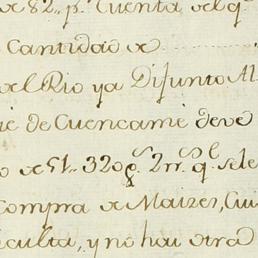 de 82.. p.s Cuenta del q.e
Cantidad de
del Rio ya Difunto Al
de Cuencamé deve
de 51.. 320 p.s 2 rr.s q.e se le
Compra de Maizes, Cui
faculta, y no hai otra